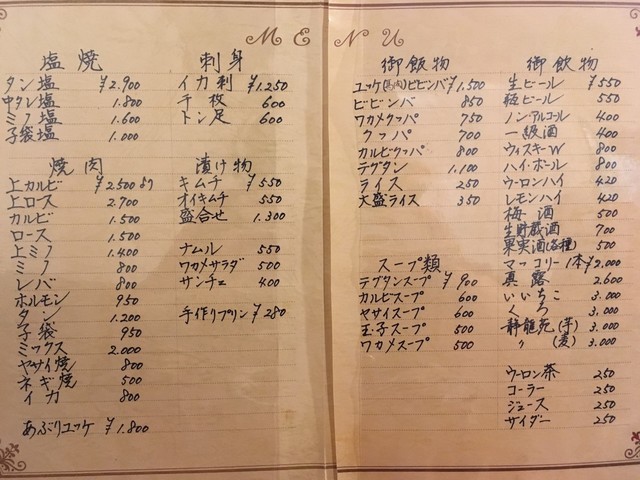 MENU
塩焼
タン塩 ¥2.900
中タレ塩 1.800
ミノ塩 1.600
子袋塩 1.000
焼肉
上カルビ ¥2.500より
上ロース 2.700
カルビ 1.500
ロース 1.500
上ミノ 1.400
ミノ 800
レバー 800
ホルモン 950
タン 1.200
子袋 950
ミックス 2.000
ヤサイ焼 800
ネギ焼 500
イカ 800
あぶりユッケ ¥1.800
刺身
イカ刺 ¥1.250
千枚 600
トン足 600
漬け物
キムチ ¥550
オイキムチ 550
盛合せ 1.300
ナムル 550
ワカメサラダ 500
サンチュ 400
手作りプリン ¥280
御飯物
ユッケ(馬肉)ビビンバ ¥1,500
ビビンバ 850
ワカメクッパ 750
クッパ 700
カルビクッパ 800
テグタン 1,100
ライス 250
大盛ライス 350
スープ類
テグタンスープ ¥900
カルビスープ 600
ヤサイスープ 600
玉子スープ 500
ワカメスープ 500
御飲物
生ビール ¥550
瓶ビール 550
ノンアルコール 400
一級酒 400
ウィスキーW 800
ハイボール 800
ウーロンハイ 420
レモンハイ 420
梅酒 500
生貯蔵酒 700
果実酒(各種) 500
マッコリー 1本 ¥2,000
真露 2.600
いいちこ 3.000
くろ 3.000
(芋) 3.000
〃 (麦) 3.000
ウーロン茶 250
コーラー 250
ジュース 250
サイダー 250